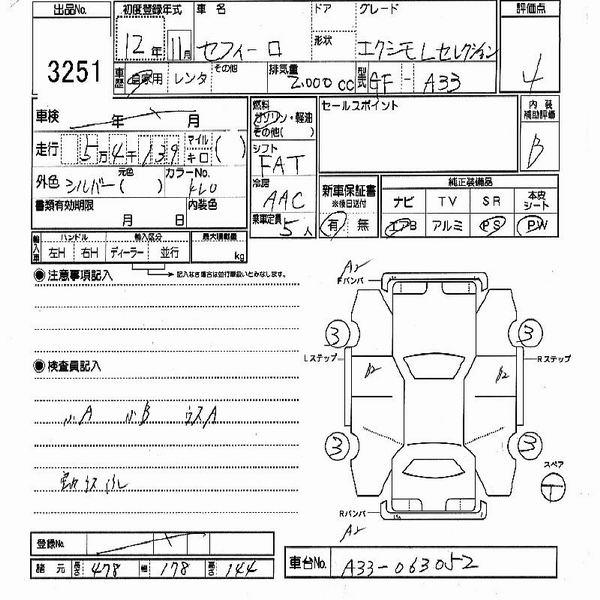 出品No. 初度登録年式 車名 ドア グレード 評価点
3251 12年 11月 セフィーロ 形状 エクシモLセレクション 4
車歴 自家用 レンタ その他 排気量 2.000cc 型式 GF-A33
車検 年 月 燃料 ガソリン・軽油 その他( ) セールスポイント 内装補助評価
走行 5万4千139 マイル キロ ( ) シフト FAT B
外色 シルバー 元色 ( ) カラーNo. KL0 冷房 AAC 新車保証書 ※後日送付 純正装備品
書類有効期限 月 日 内装色 乗車定員 5人 有 無 ナビ TV SR 本皮シート
エアB アルミ PS PW
輸入車 ハンドル 輸入区分 最大積載量
左H 右H ディーラー 並行 kg
記入なき場合は並行扱いとみなします。
◉注意事項記入
A2
Fバンパ
3 3
Lステップ Rステップ
◉検査員記入
B2 B2
小A 小B ウスA
3 3
スペア
T
Rバンパ
A2
登録No.
車台No. A33-063052
諸元 長さ 478 幅 178 高さ 144